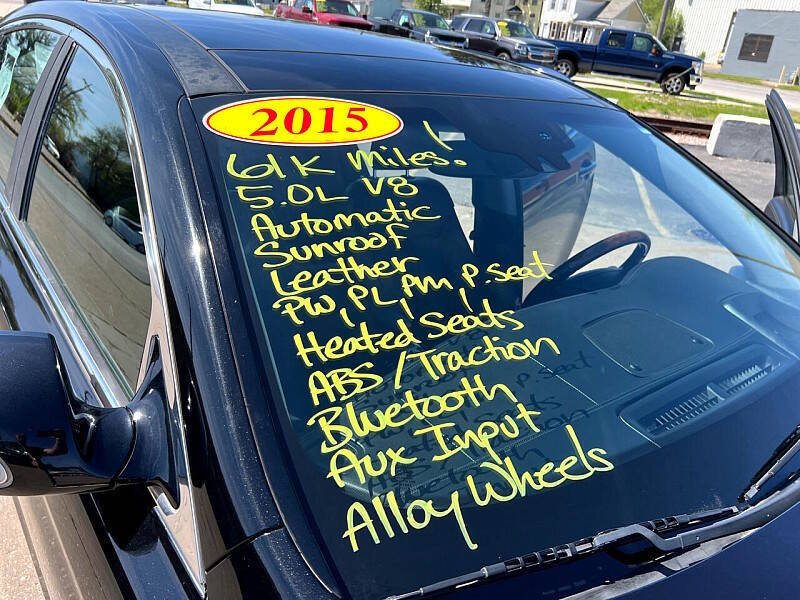 2015
61K Miles!
5.0L V8
Automatic
Sunroof
Leather
PW, PL, PM, P. Seat
Heated Seats
ABS / Traction
Bluetooth
Aux Input
Alloy Wheels